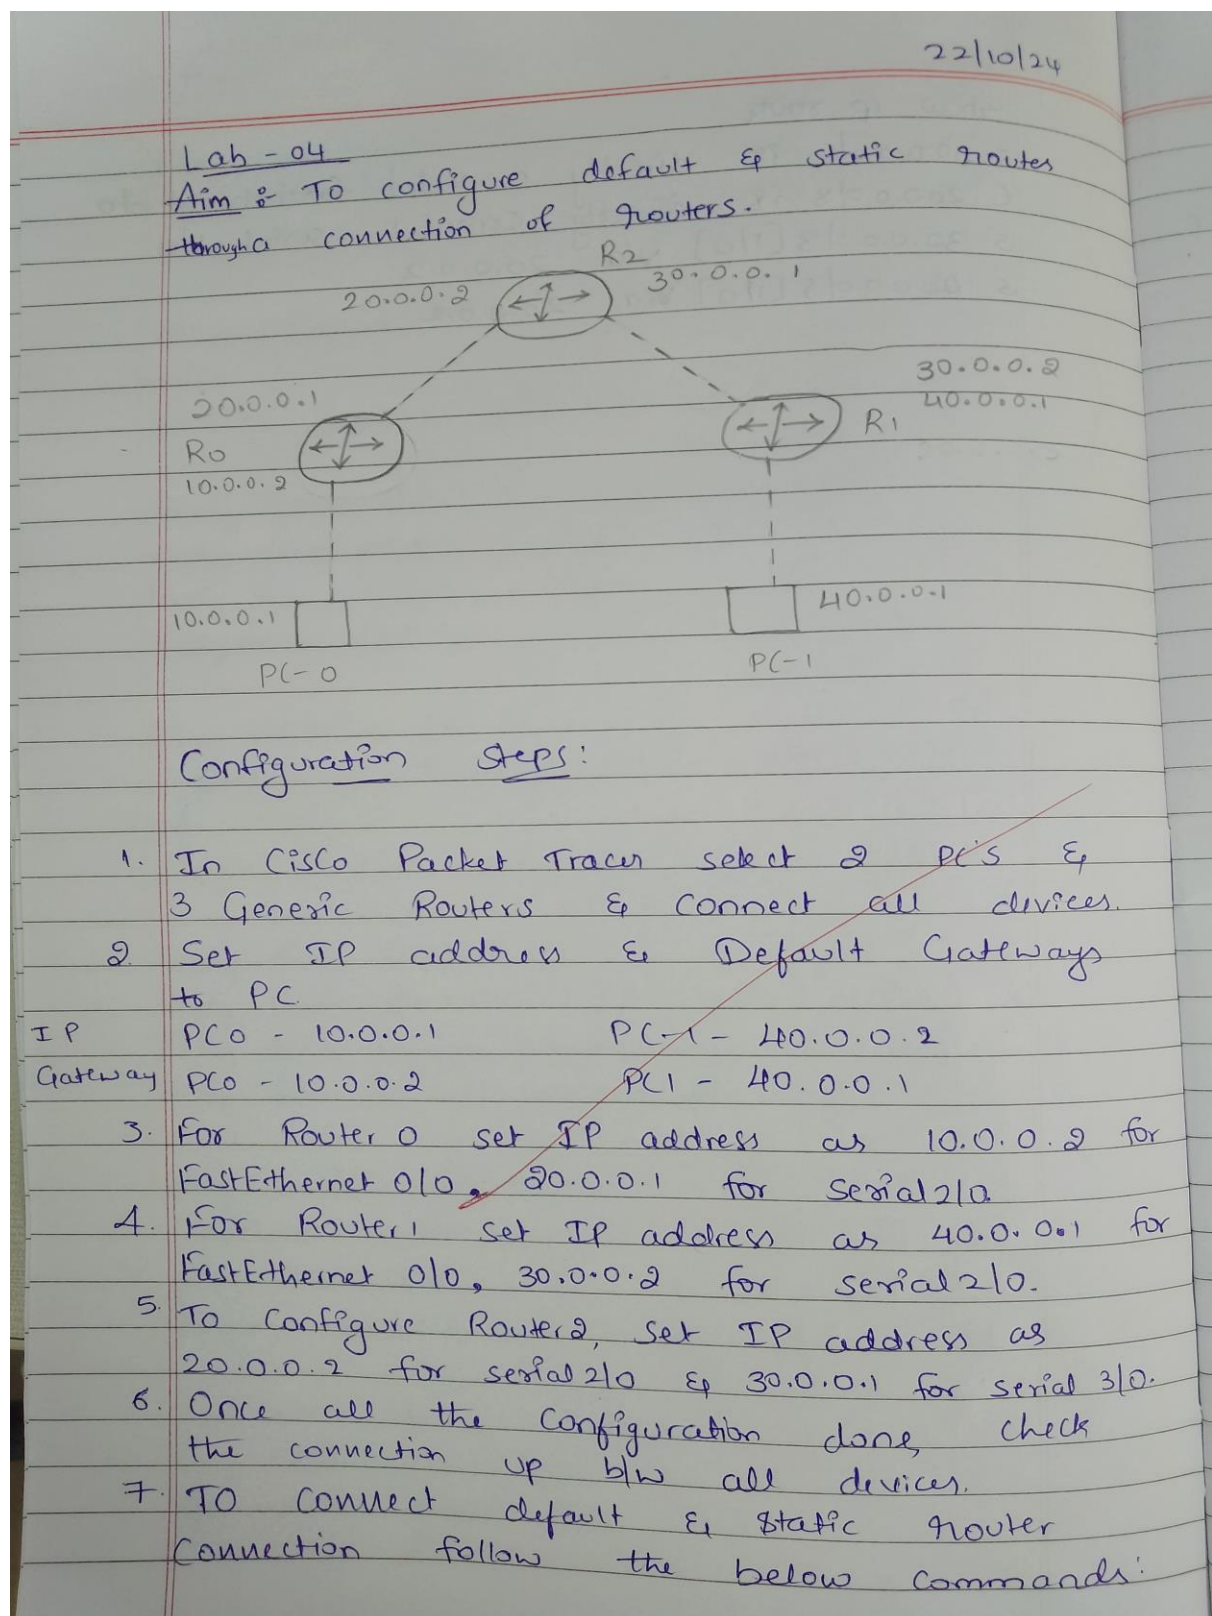 22/10/24
Lab - 04
Aim : To configure default & static routes
through a connection of routers.
R2
20.0.0.2 30.0.0.1
30.0.0.2
20.0.0.1 40.0.0.1
R0 R1
10.0.0.2
10.0.0.1 40.0.0.1
PC-0 PC-1
Configuration Steps:
1. In Cisco Packet Tracer select 2 PC's &
3 Generic Routers & connect all devices.
2. Set IP address & Default Gateways
to PC
IP PC0 - 10.0.0.1 PC-1 - 40.0.0.2
Gateway PC0 - 10.0.0.2 PC1 - 40.0.0.1
3. For Router 0 set IP address as 10.0.0.2 for
FastEthernet 0/0, 20.0.0.1 for serial 2/0
4. For Router 1 set IP address as 40.0.0.1 for
FastEthernet 0/0, 30.0.0.2 for serial 2/0.
5. To Configure Router2, set IP address as
20.0.0.2 for serial 2/0 & 30.0.0.1 for serial 3/0.
6. Once all the configuration done, check
the connection up b/w all devices.
7. To connect default & static router
connection follow the below commands: